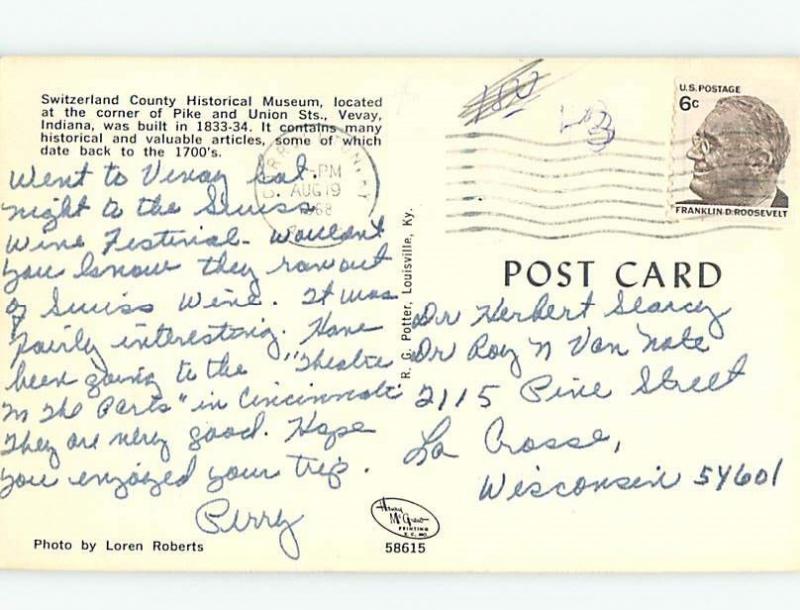 Switzerland County Historical Museum, located
at the corner of Pike and Union Sts., Vevay,
Indiana, was built in 1833-34. It contains many
historical and valuable articles, some of which
date back to the 1700's.
Went to Vevay Sat.
night to the Swiss
Wine Festival - Wouldn't
you know they ran out
of Swiss Wine. It was
fairly interesting. Have
been going to the "Theatre
In The Parks" in Cincinnati
They are very good. Hope
you enjoyed your trip.
Perry
Photo by Loren Roberts
PM
AUG 19
1968
R. G. Potter, Louisville, Ky.
U.S. POSTAGE
6c
FRANKLIN D. ROOSEVELT
POST CARD
Dr Herbert Searcy
Dr Roy N Van Note
2115 Pine Street
La Crosse,
Wisconsin 54601
Henry
McGrew
PRINTING
K. C. MO.
58615